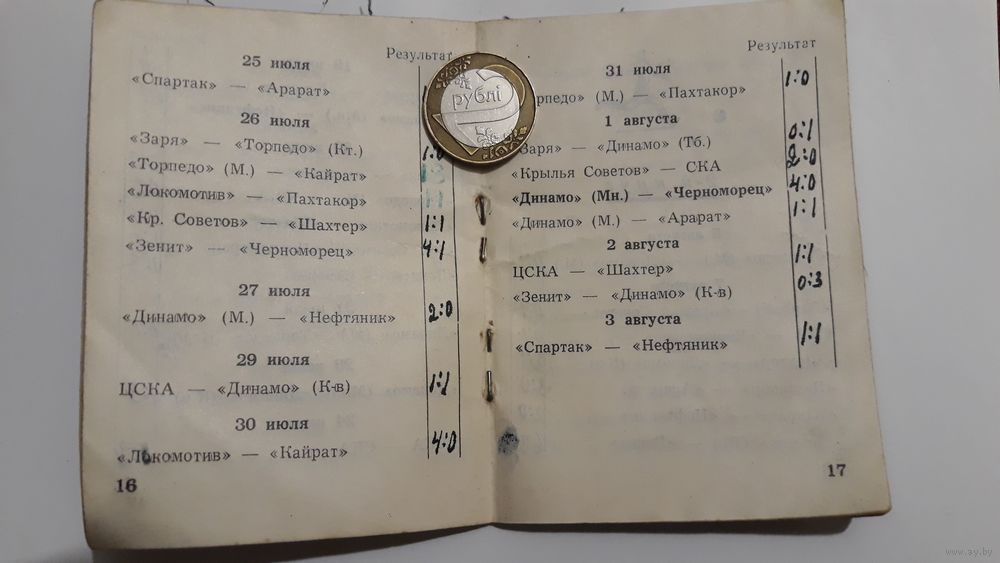 Результат
25 июля
«Спартак» — «Арарат»
26 июля
«Заря» — «Торпедо» (Кт.) 1:0
«Торпедо» (М.) — «Кайрат»
«Локомотив» — «Пахтакор»
«Кр. Советов» — «Шахтер» 1:1
«Зенит» — «Черноморец» 4:1
27 июля
«Динамо» (М.) — «Нефтяник» 2:0
29 июля
ЦСКА — «Динамо» (К-в) 1:1
30 июля
«Локомотив» — «Кайрат» 4:0
16
рублі
Результат
31 июля
орпедо» (М.) — «Пахтакор» 1:0
1 августа
«Заря» — «Динамо» (Тб.) 0:1
«Крылья Советов» — СКА 2:0
«Динамо» (Мн.) — «Черноморец» 4:0
«Динамо» (М.) — «Арарат» 1:1
2 августа
ЦСКА — «Шахтер» 1:1
«Зенит» — «Динамо» (К-в) 0:3
3 августа
«Спартак» — «Нефтяник» 1:1
17
www.ay.by